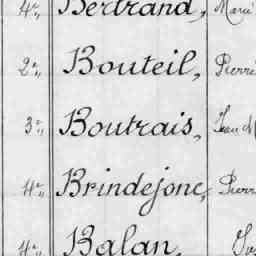 4e,, Bertrand, Marie
2e,, Bouteil, Pierre
3e,, Boutrais, Jean
4e,, Brindejonc, Pierr
4e,, Balan,